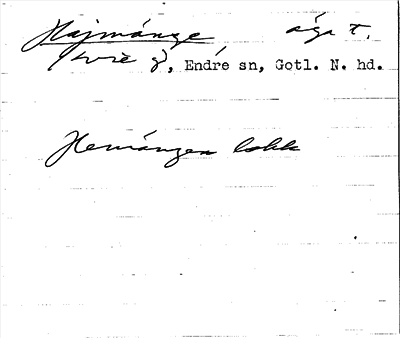 Hajmánge åga t.
Hvie g, Endre sn, Gotl. N. hd.
Hemángen lokk